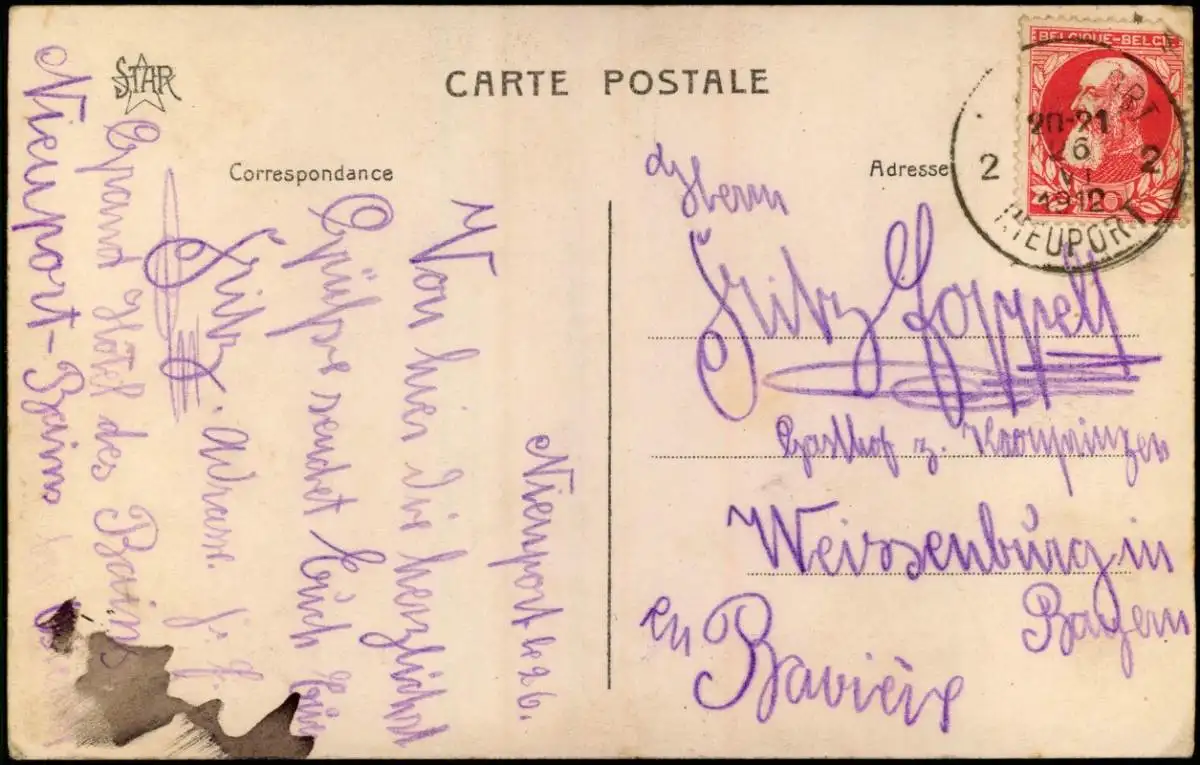 STAR
CARTE POSTALE
Correspondance
Adresse
BELGIQUE-BELGIË
20-21
2 6 2
VI
1912
NIEUPORT
Nieuport le 26.
Von hier die herzlichst
Grüße sendet Euch Euer
Fritz.
Grand Hôtel des Bains
Nieuport-Bains
Herrn
Fritz Goppelt
Gasthof z. Kronprinzen
Weissenburg in
Bayern
en Bavière